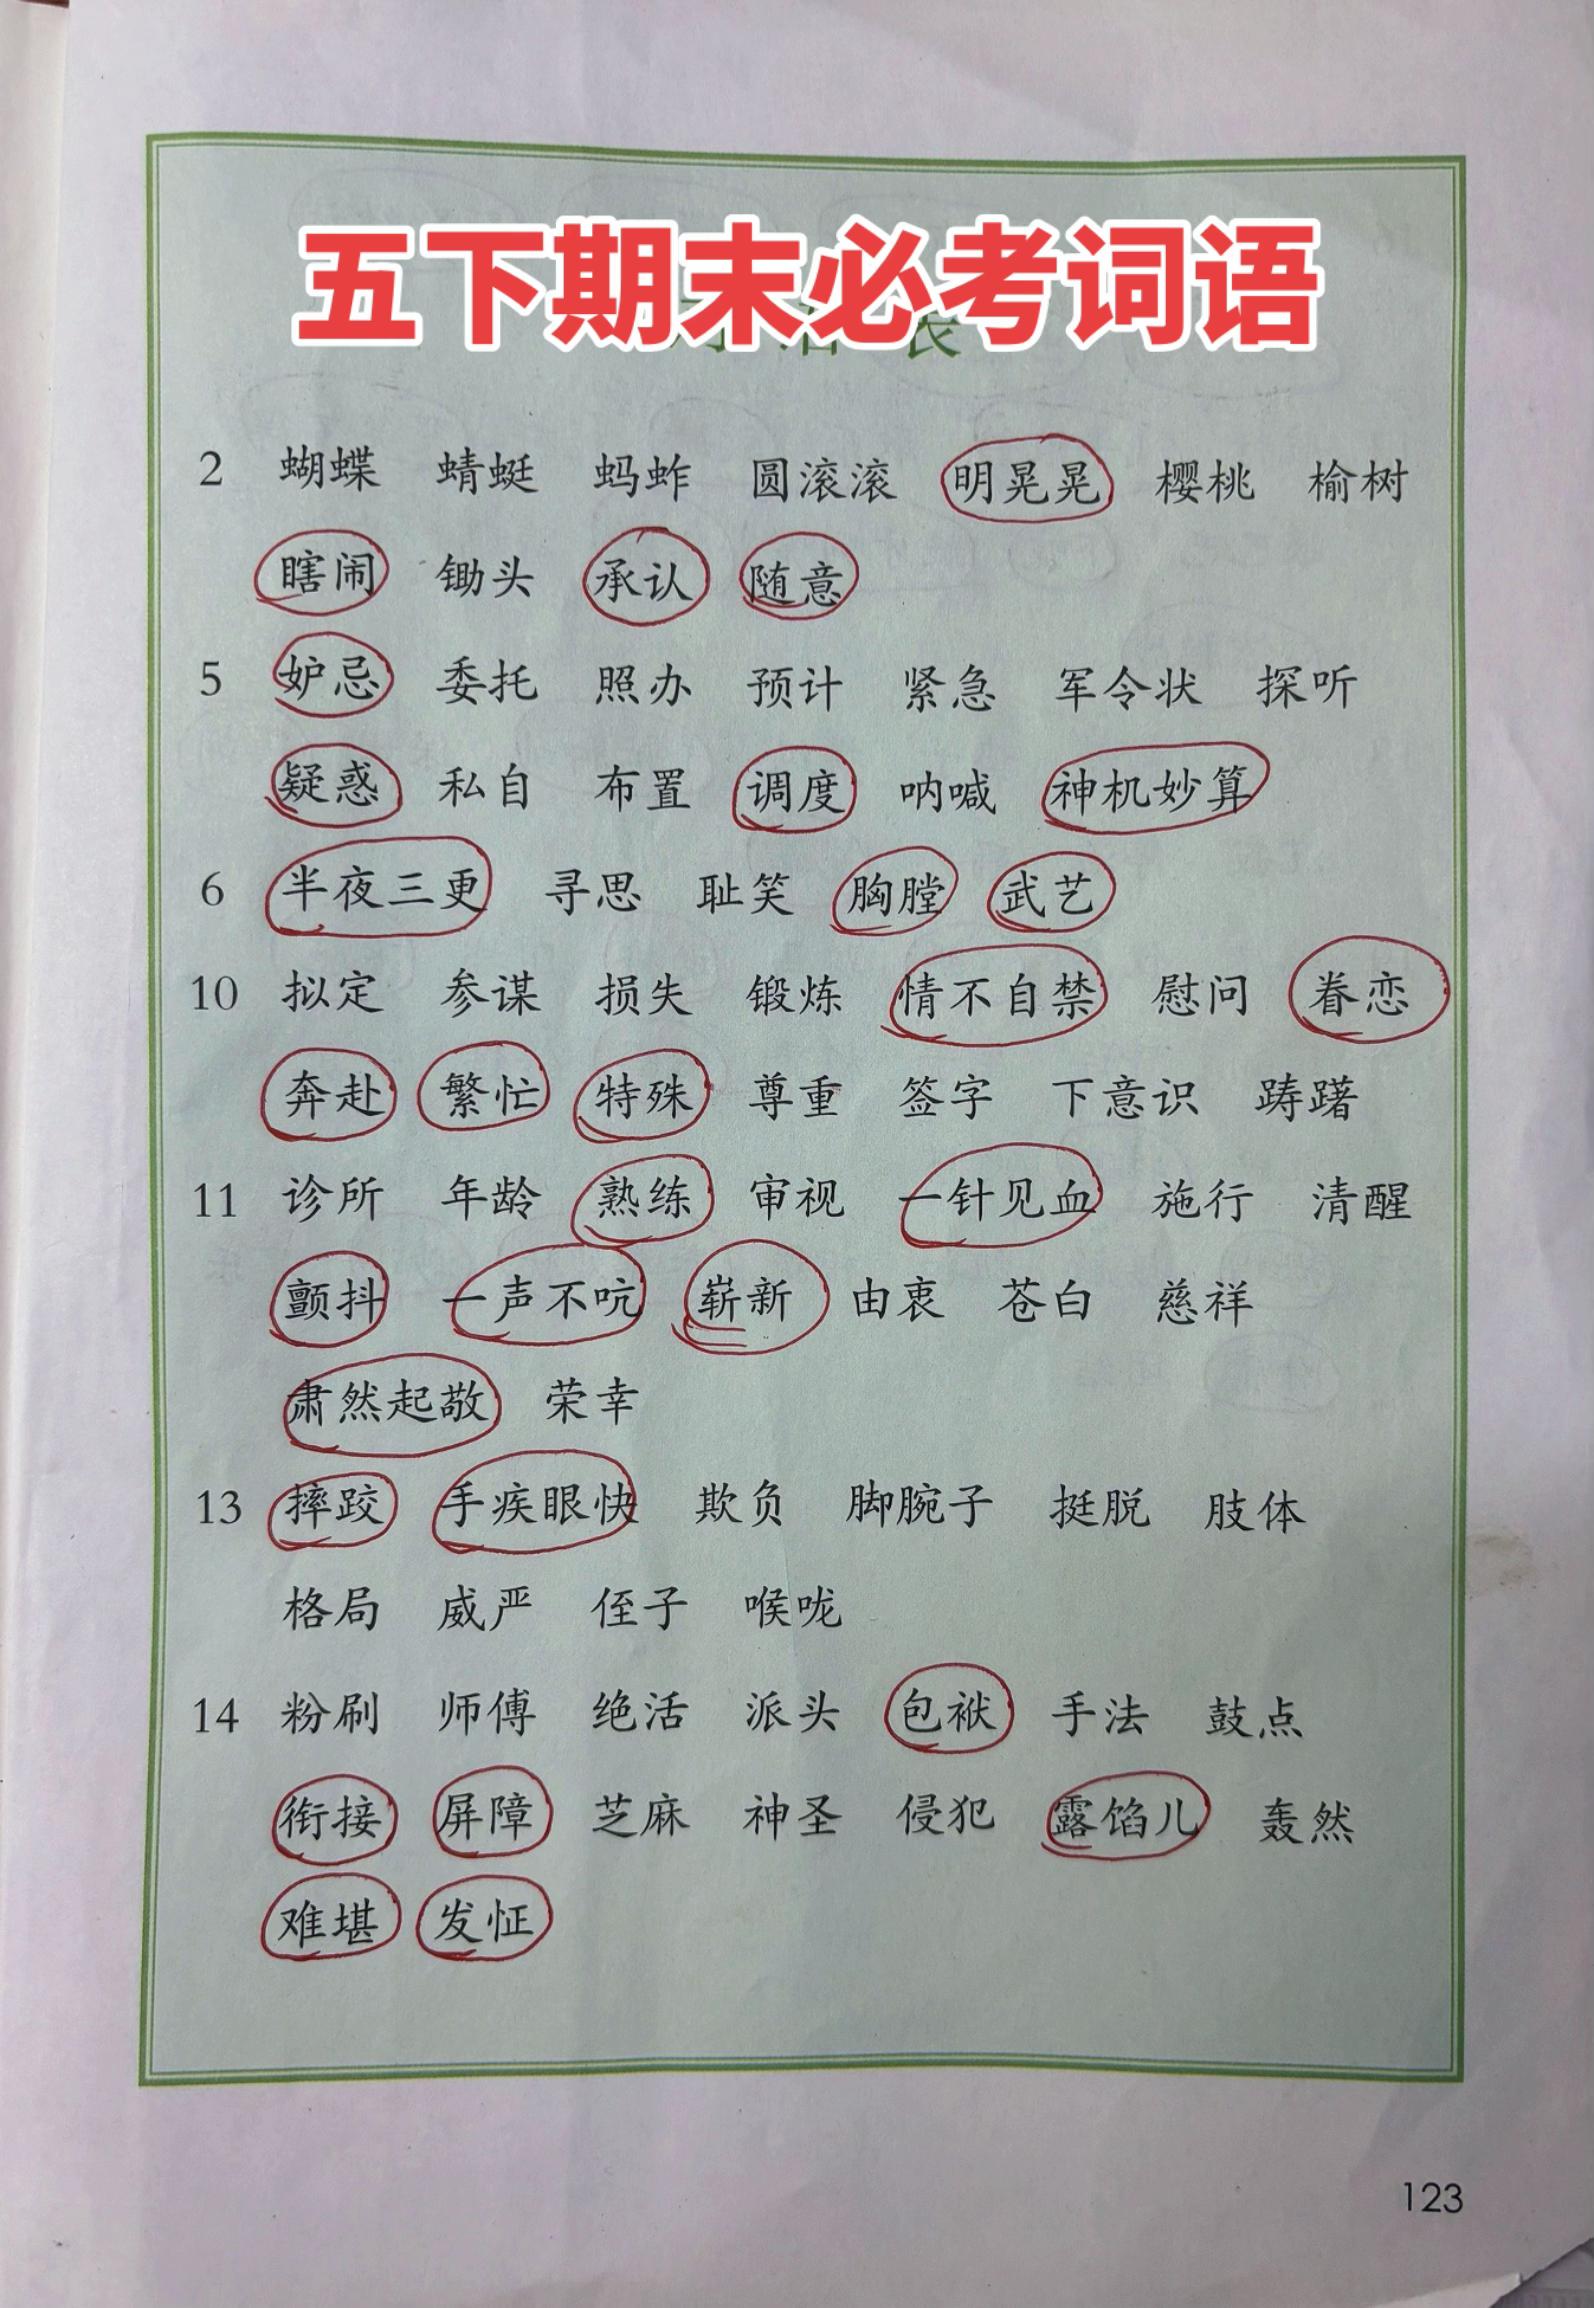 五下期末必考词语
2 蝴蝶 蜻蜓 蚂蚱 圆滚滚 明晃晃 樱桃 榆树
瞎闹 锄头 承认 随意
5 妒忌 委托 照办 预计 紧急 军令状 探听
疑惑 私自 布置 调度 呐喊 神机妙算
6 半夜三更 寻思 耻笑 胸膛 武艺
10 拟定 参谋 损失 锻炼 情不自禁 慰问 眷恋
奔赴 繁忙 特殊 尊重 签字 下意识 踌躇
11 诊所 年龄 熟练 审视 一针见血 施行 清醒
颤抖 一声不吭 崭新 由衷 苍白 慈祥
肃然起敬 荣幸
13 摔跤 手疾眼快 欺负 脚腕子 挺脱 肢体
格局 威严 侄子 喉咙
14 粉刷 师傅 绝活 派头 包袱 手法 鼓点
衔接 屏障 芝麻 神圣 侵犯 露馅儿 轰然
难堪 发怔
123